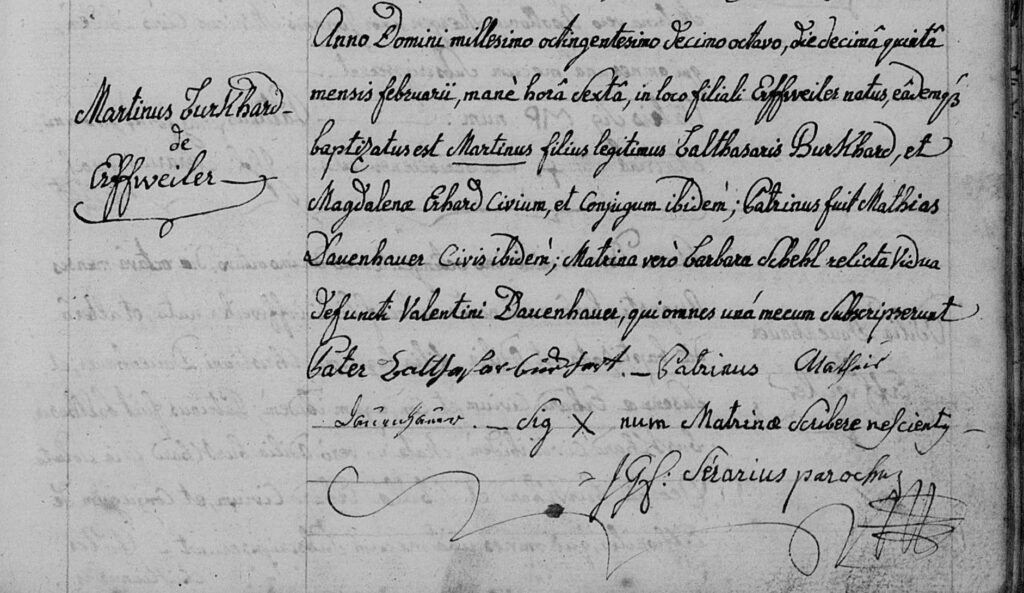 Martinus Burkhard
de
Erffweiler
Anno Domini millesimo octingentesimo decimo octavo, die decimâ quintâ
mensis februarii, manè horâ sextâ, in loco filiali Erffweiler natus, eâdemq3
baptizatus est Martinus filius legitimus Balthasaris Burkhard, et
Magdalenæ Erhard Civium, et Conjugum ibidèm; Patrinus fuit Mathias
Dauenhauer Civis ibidèm; Matrina verò barbara Schehl relicta Vidua
defuncti Valentini Dauenhauer, qui omnes unà mecum Subscripserunt
Pater Balthasar burkhart. — Patrinus Matheis
Dauenhauer. — Sig X num Matrinæ Scribere nescienty —
Sérarius parochus